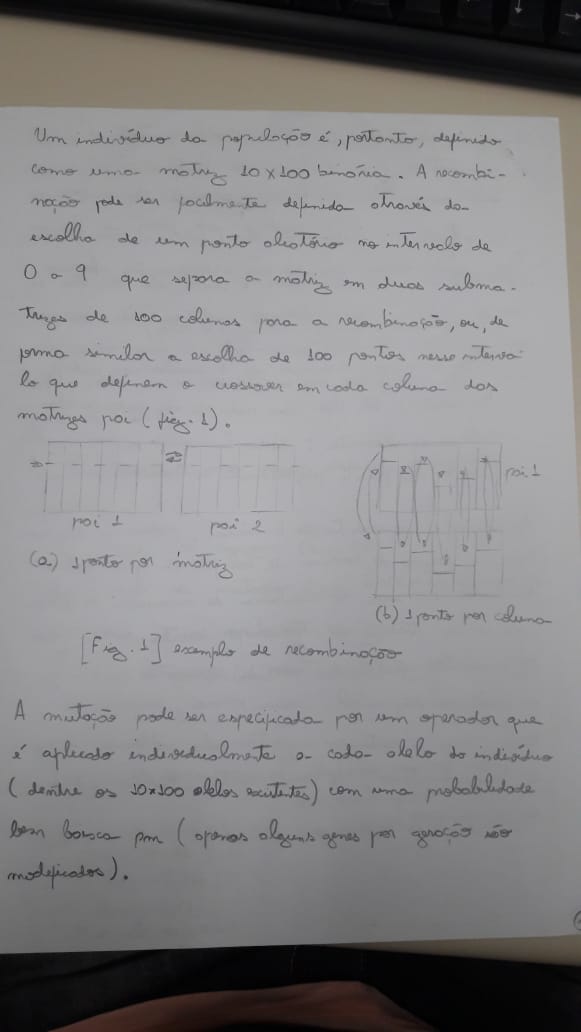 Um indivíduo da população é, portanto, definido
como uma matriz 10 x 100 binária. A recombi-
nação pode ser facilmente definida através da
escolha de um ponto aleatório no intervalo de
0 a 9 que separa a matriz em duas subma-
trizes de 100 colunas para a recombinação, ou, de
forma similar a escolha de 100 pontos nesse interva
lo que definem o crossover em cada coluna das
matrizes pai (fig. 1).
pai 1
pai 2
pai 1
(a) 1 ponto por matriz
(b) 1 ponto por coluna
[Fig. 1] exemplo de recombinação
A mutação pode ser especificada por um operador que
é aplicado individualmente a cada alelo do indivíduo
(dentre os 10x100 alelos existentes) com uma probabilidade
bem baixa pm (apenas alguns genes por geração são
modificados).